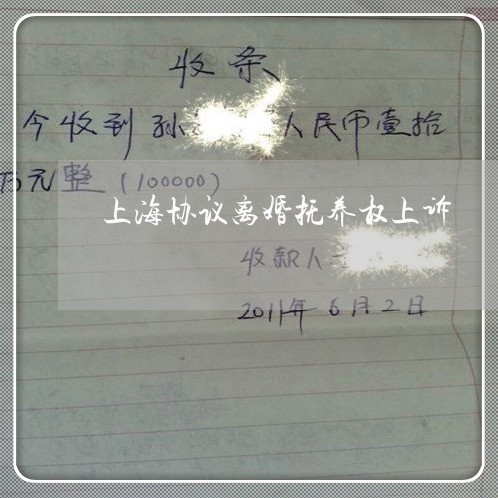 收条
今收到孙 人民币壹拾
万元整(100000)
上海协议离婚抚养权上诉
收款人
2011年6月2日